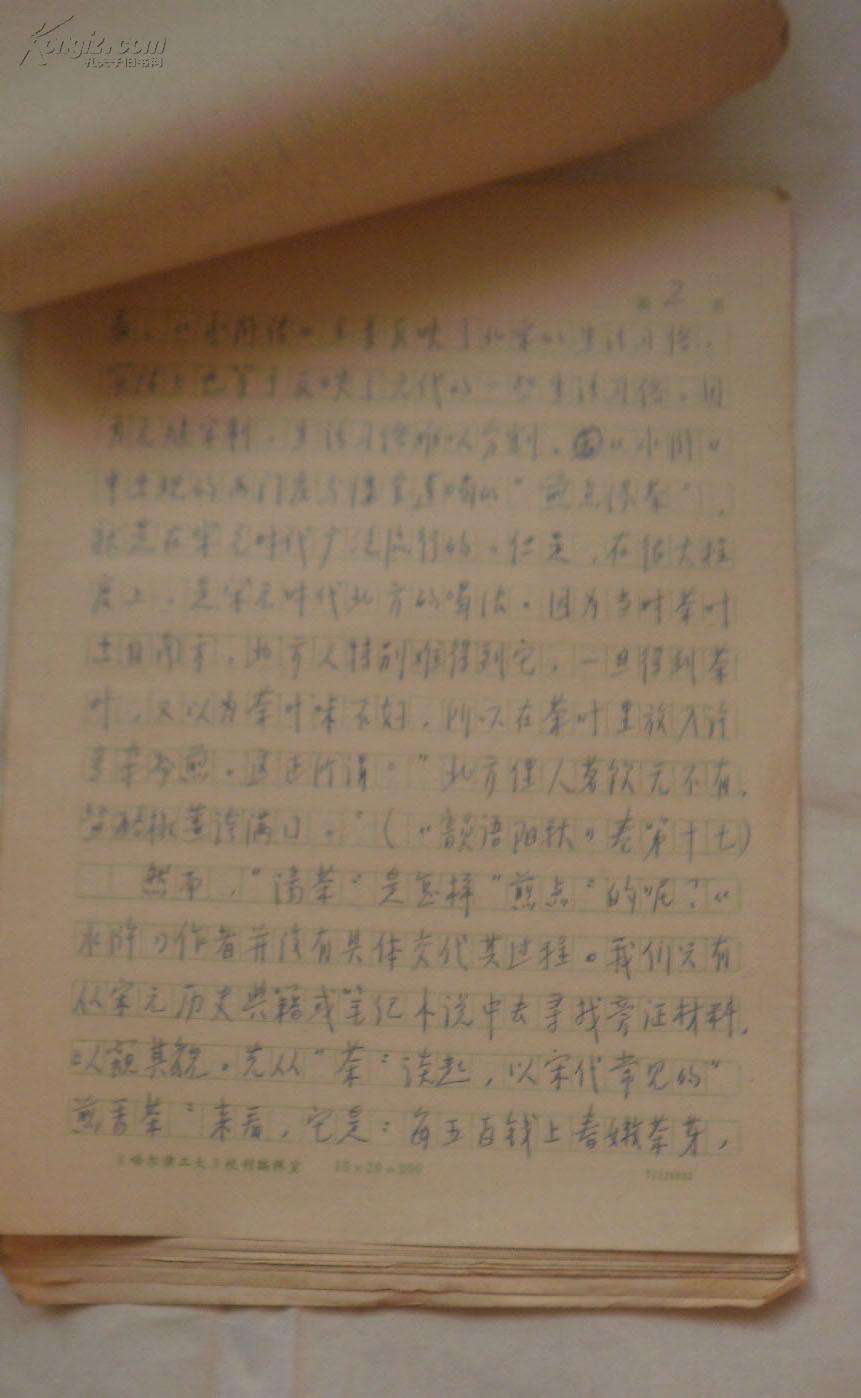 Kongfz.com
孔夫子旧书网
第 2 页
《水浒传》主要反映了北宋的生活习俗，
实际上也等于反映了元代的一些生活习俗，因
为元继宋制，生活习俗难以分割。《水浒》
中出现的西门庆与潘金莲喝的“煎点汤茶”，
就是在宋元时代广泛流行的。但是，在很大程
度上，是宋元时代北方的喝法。因为当时茶叶
出自南方，北方人特别难得到它，一旦得到茶
叶，又以为茶叶味不好，所以在茶叶里放入许
多杂物煎。这正所谓：“北方俚人茗饮无不有，
盐酪椒姜夸满口。”（《韵语阳秋》卷第十七）
然而，“汤茶”是怎样“煎点”的呢？《
水浒》作者并没有具体交代其过程。我们只有
从宋元历史典籍或笔记小说中去寻找旁证材料，
以窥其貌。先从“茶”谈起，以宋代常见的“
煎香茶”来看，它是：每五百钱上春嫩茶芽，
《哈尔滨工大》校刊编辑室